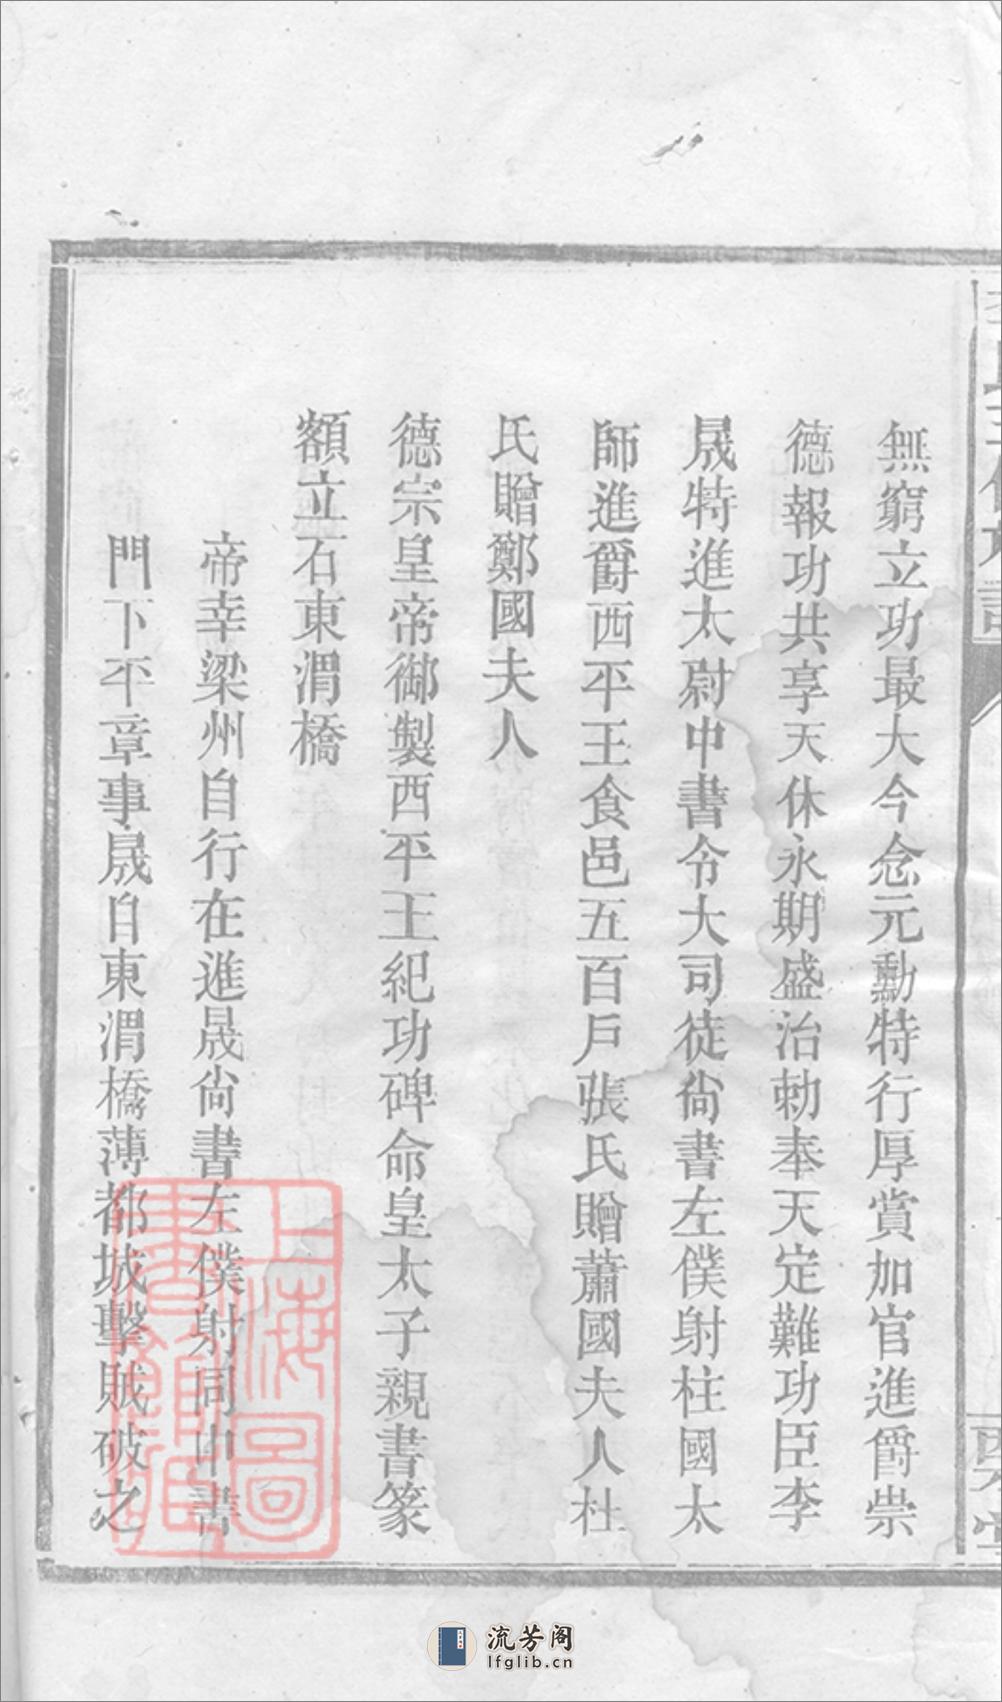 無窮立功最大今念元勳特行厚賞加官進爵崇
德報功共享天休永期盛治勅奉天定難功臣李
晟特進太尉中書令大司徒尙書左僕射柱國太
師進爵西平王食邑五百戶張氏贈蕭國夫人杜
氏贈鄭國夫人
德宗皇帝御製西平王紀功碑命皇太子親書篆
額立石東渭橋
帝幸梁州自行在進晟尙書左僕射同中書
門下平章事晟自東渭橋薄都城擊賊破之
上海圖
書館藏
流芳阁
lfglib.cn